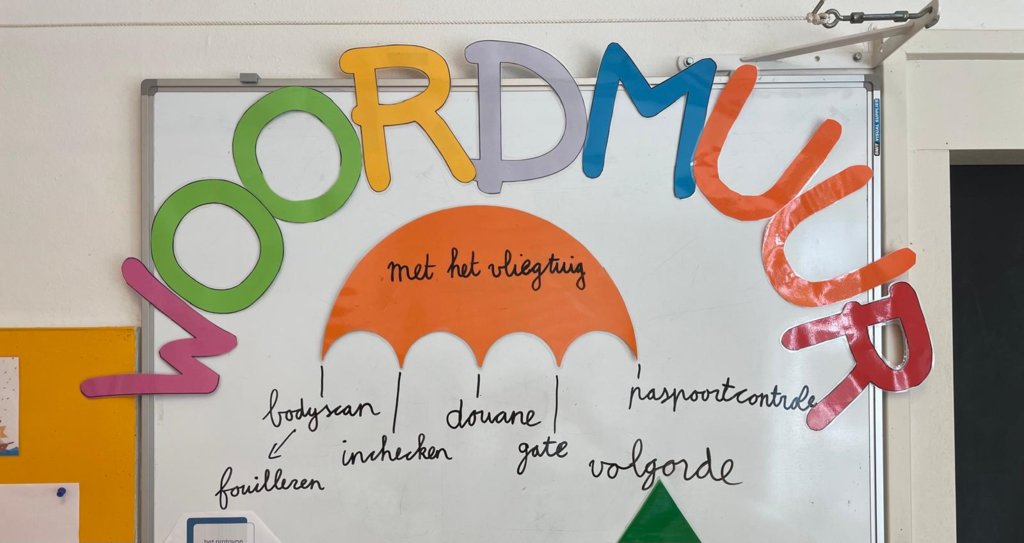 WOORDMUUR
met het vliegtuig
bodyscan
inchecken
douane
gate
paspoortcontrole
fouilleren
volgorde